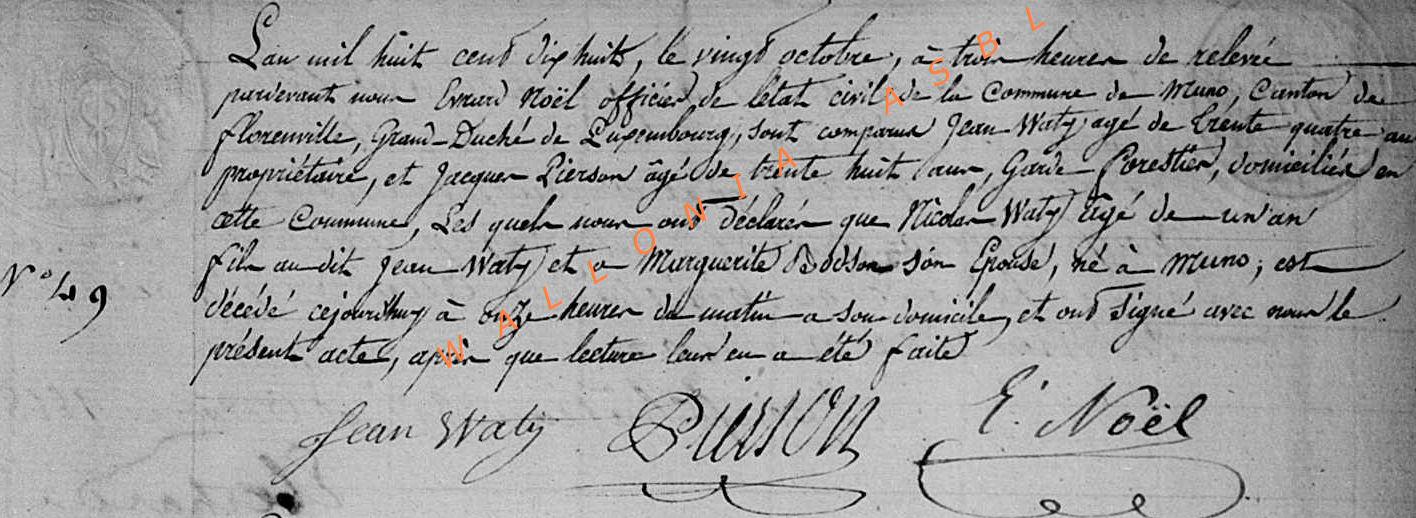 L'an mil huit cent dix huit, le vingt octobre, à trois heures de relevée
pardevant nous Evrard Noël officier de l'état civil de la Commune de Muno, Canton de
florenville, Grand-Duché de Luxembourg, sont comparus Jean Waty agé de trente quatre ans
propriétaire, et Jacques Pierson âgé de trente huit ans, Garde forestier, domiciliés en
cette Commune, Les quels nous ont déclarés que Nicolas Waty agé de un an
fils au dit Jean Waty et a Marguerite Bodson son Epouse, né à Muno, est
N° 49
décédé cejourdhuy à onze heures du matin a son domicile, et ont signé avec nous le
présent acte, après que lecture leur en a été faite
Jean Waty Pierson E. Noël
WALLONIA ASBL